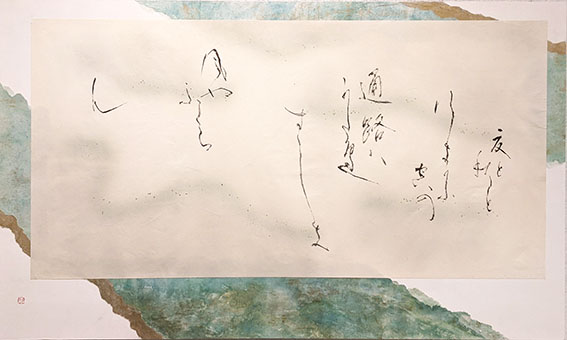 夏と
秋と
行きかふ
空の
通路は
かたへ
すゝしき
風や
ふくら
ん